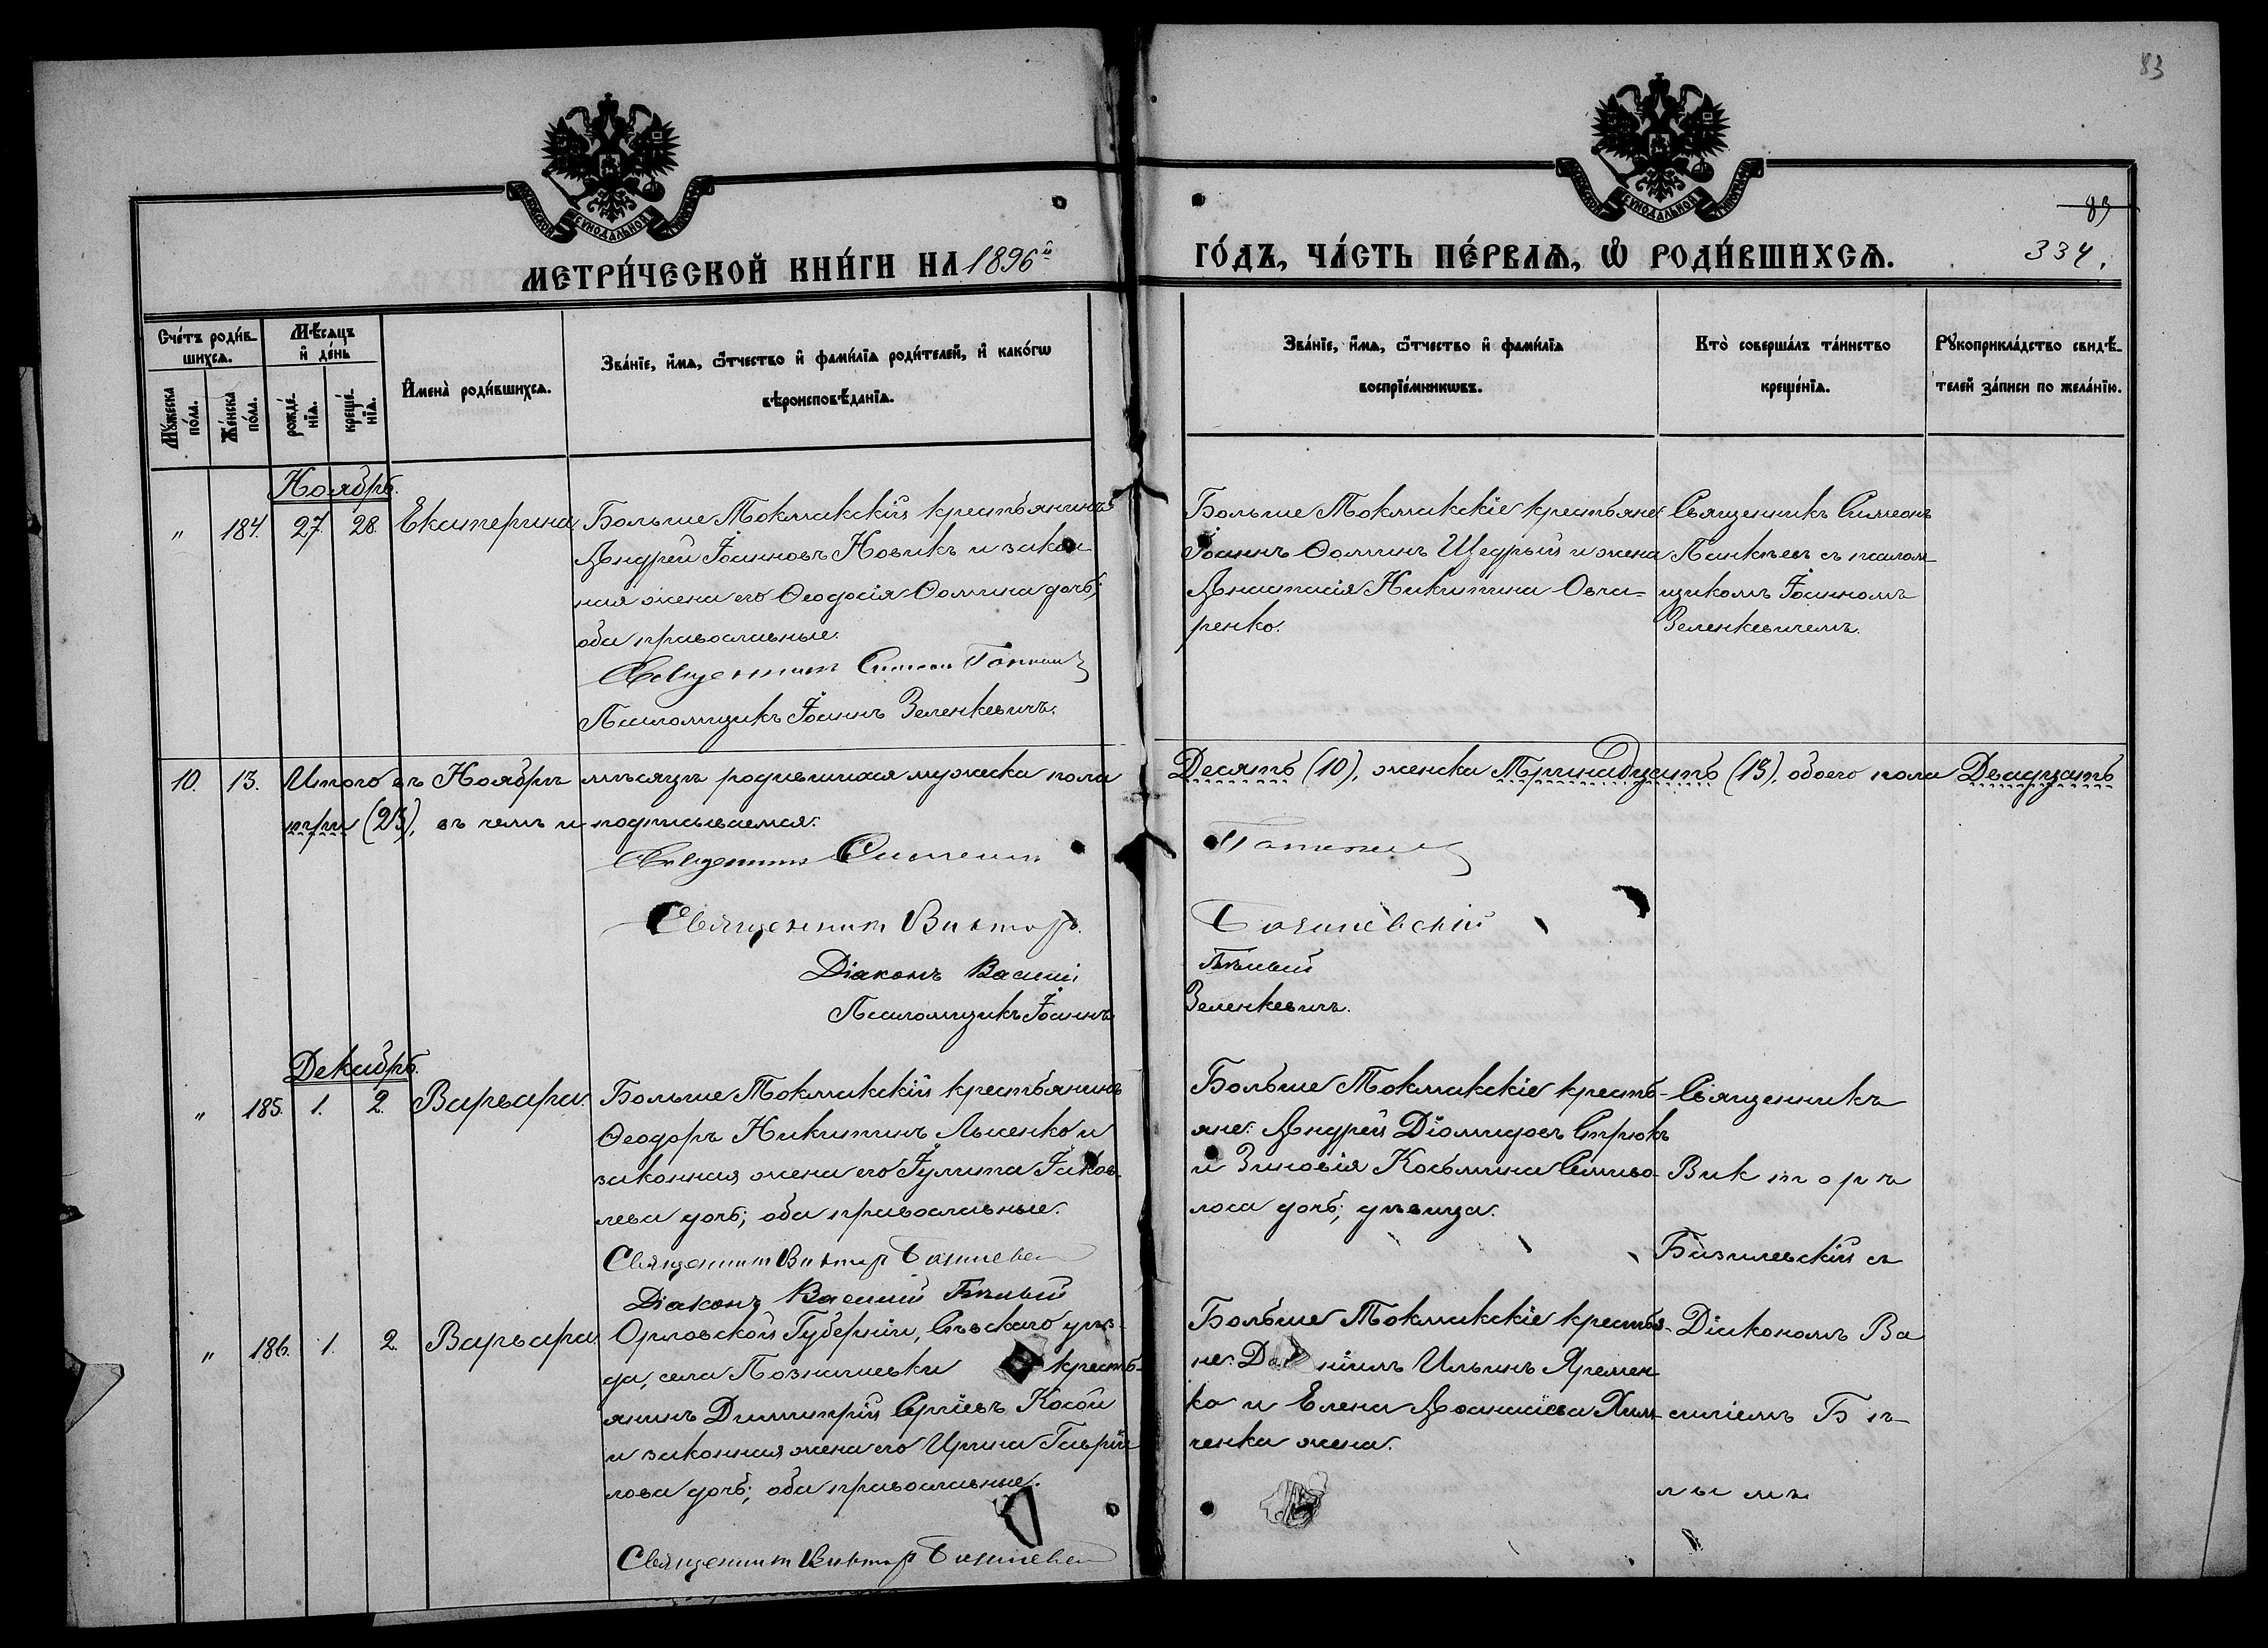 83
83
334.
МЕТРИ́ЧЕСКОЙ КНИ́ГИ НА 1896й
ГО́ДЪ, ЧА́СТЬ ПЕ́РВАѦ, Ѡ РОДИ́ВШИХСѦ.
Сче́тъ роди́в-
шихсѧ.
Мꙋ́жеска по́ла.
Же́нска по́ла.
Мѣ́сѧцъ
и де́нь
рожде́-
нїѧ.
креще́-
нїѧ.
И́мена̀ роди́вшихсѧ.
Зва́нїе, и́мѧ, ѻ́тчество и фами́лїѧ роди́телей, и како́гѡ
вѣроисповѣ́данїѧ.
Зва́нїе, и́мѧ, ѻ́тчество и фами́лїѧ
воспрїе́мникѡвъ.
Кто̀ соверша́лъ та́инство
креще́нїѧ.
Рꙋкоприкла́дство свидѣ́-
телей за́писи по жела́нїю.
Ноябрь.
" 184. 27. 28. Екатерина
Больше Токмакскій крестьянинъ
Андрей Іоанновъ Новикъ и закон-
ная жена его Ѳеодосія Ѳомина дочь;
оба православные.
Священникъ Симеон
Псаломщикъ Іоаннъ Зеленкевичъ.
Больше Токмакскіе крестьяне
Іоаннъ Ѳоминъ Щедрый и жена
Анастасія Никитина Овча-
ренко.
Священникъ Симеонъ
съ псалом-
щикомъ Іоанномъ
Зеленкевичемъ.
10. 13. Итого въ Ноябрѣ мѣсяцѣ родившихся мужеска пола Десять (10), женска Тринадцать (13), обоего пола Двадцать
три (23), въ чемъ и подписываемся:
Священникъ Симеонъ
Священникъ Викторъ Базилевскій
Діаконъ Василій Бѣлый
Псаломщикъ Іоаннъ Зеленкевичъ.
Декабрь.
" 185. 1. 2. Варвара.
Больше Токмакскій крестьянинъ
Ѳеодоръ Никитинъ Лысенко и
законная жена его Іулита Іаков-
лева дочь; оба православные.
Священникъ Виктор Базилевск
Діаконъ Василий Бѣлый
Больше Токмакскіе кресть-
яне: Андрей Діомидовъ Стрюкъ
и Зиновія Косьмина Семиво-
лоса дочь; дѣвица.
Священникъ
Викторъ
Базилевскій съ
Діакономъ Ва
силіемъ Бѣ-
лымъ
" 186. 1. 2. Варвара.
Орловской Губерніи, Сѣвскаго уѣз-
да, села кресть-
янинъ Димитрій Сергіевъ Косой
и законная жена его Ирина Гаврій-
лова дочь; оба православные.
Священникъ Виктор Базилевск
Больше Токмакскіе крестья-
не: Да ніилъ Ильинъ Яремен-
ко и Елена Аѳанасіева Хим-
ченка жена.